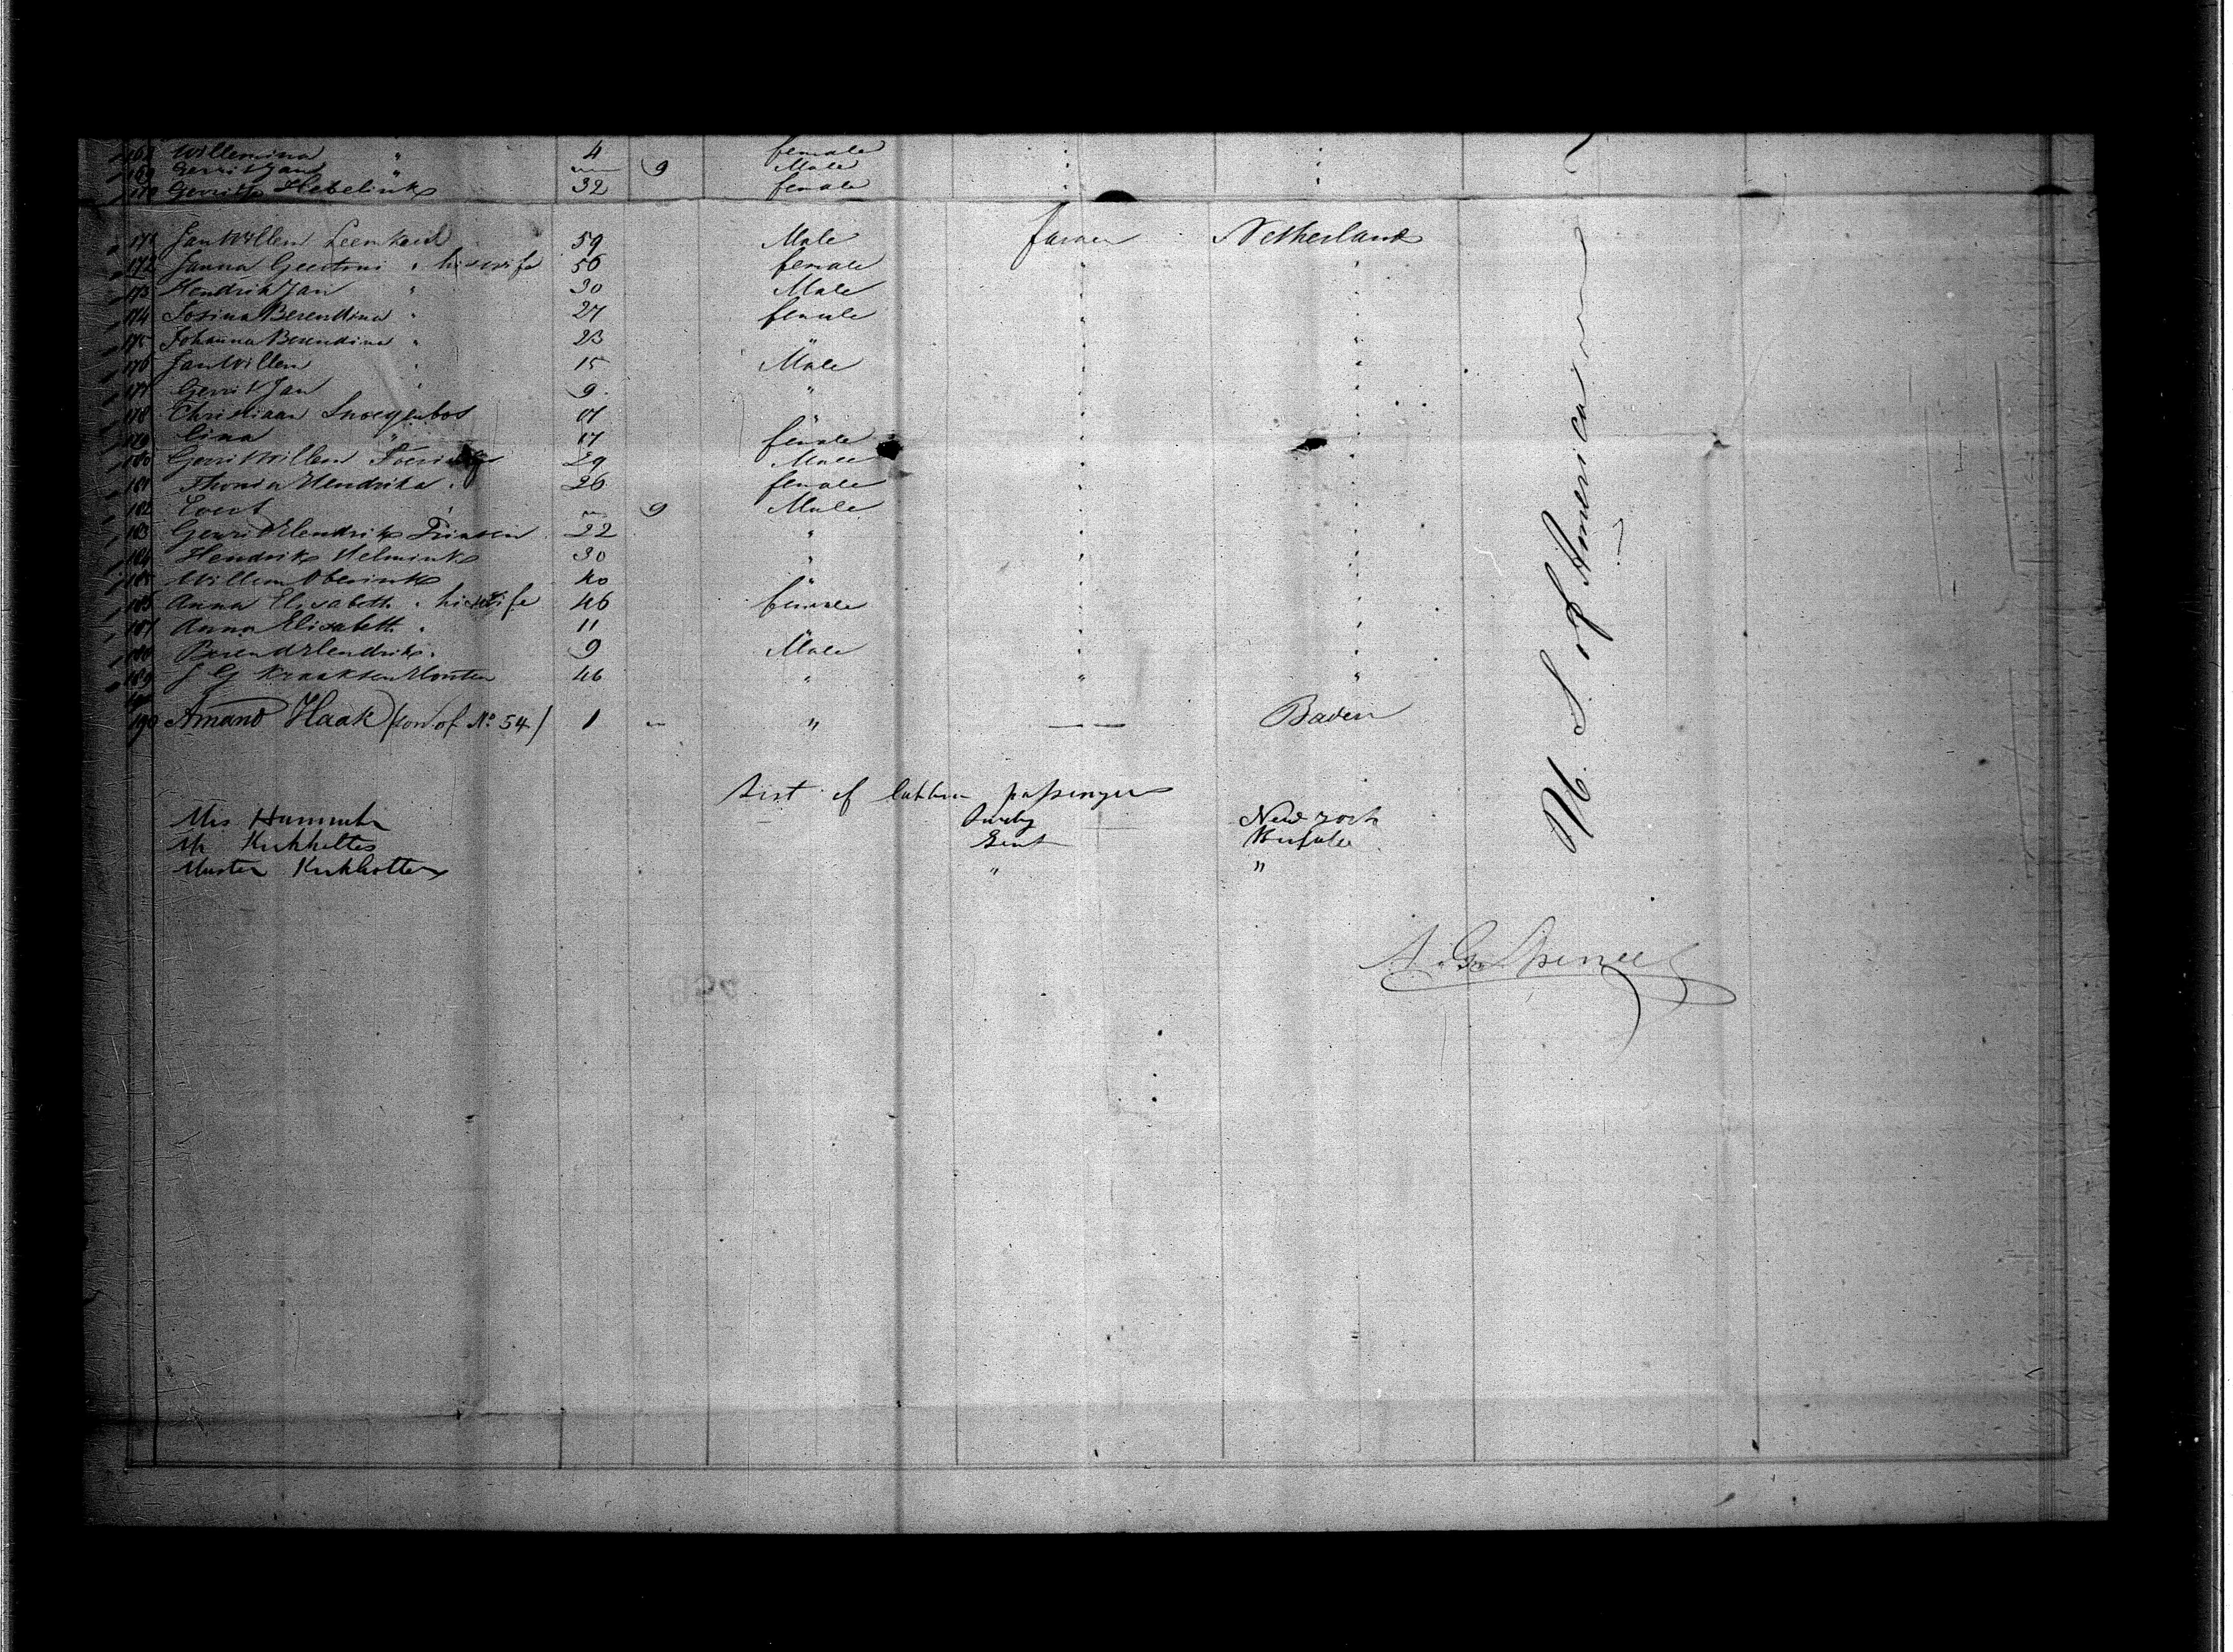 168 Willemina " 4 female
169 Gerrit Jan " 9 Male
170 Gerritje Hebelink 32 female
171 Jan Willem Leenhard 59 Male farmer Netherland
172 Janna Geertrui " his wife 56 female " "
173 Hendrik Jan " 30 Male " "
174 Josina Berendina " 27 female " "
175 Johanna Berendina " 23 " " "
176 Jan Willem " 15 Male " "
177 Gerrit Jan " 9 " " "
178 Christiaan 17 " " "
179 Lina " 17 female " "
180 Gerrit Willem 29 Male " "
181 Hendrika " 26 female " "
182 Evert " 9 Male " "
183 Gerrit Hendrik 22 " " "
184 Hendrik Helmink 30 " " "
185 Willem Oberink 40 " " "
186 Anna Elisabeth " his wife 46 female " "
187 Anna Elisabeth " 11 " " "
188 Berend Hendrik " 9 Male " "
189 J G Kraaksen Houten 46 " " "
190 Amand Haak (son of No. 54) 1 — " — — Baden
U. S. of America
List of cabbin passenger
Mrs New York
Mr Gent
Master " "